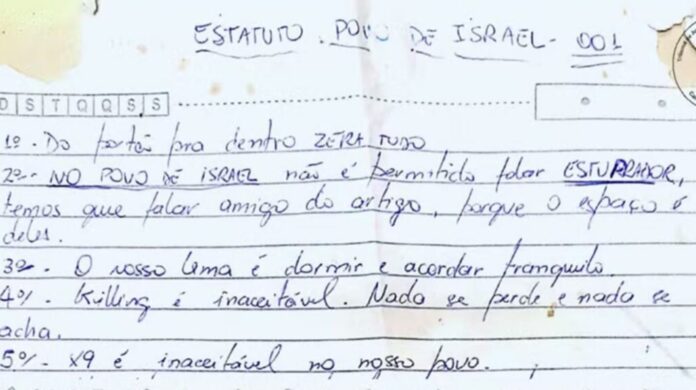 ESTATUTO. POVO DE ISRAEL - 001
D S T Q Q S S
1º- Do portão pra dentro ZERA TUDO
2º- NO POVO DE ISRAEL não é permitido falar ESTUPRADOR,
temos que falar amigo do artigo, porque o espaço é
deles.
3º- O nosso lema é dormir e acordar tranquilo.
4º- Killing é inaceitável. Nada se perde e nada se
acha.
5º- X9 é inaceitável no nosso povo.